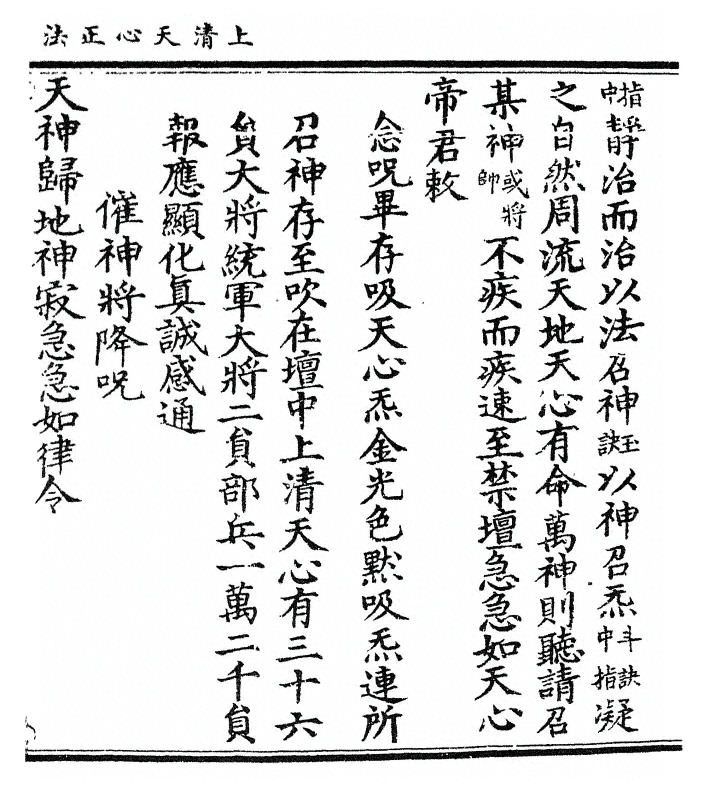 上清天心正法
指中靜治而治以法召神玉訣以神召炁斗訣中指凝
之自然周流天地天心有命萬神則聽請召
某神或將帥不疾而疾速至禁壇急急如天心
帝君敕
念呪畢存吸天心炁金光色默吸炁連所
召神存至吹在壇中上清天心有三十六
員大將統軍大將二員部兵一萬二千員
報應顯化真誠感通
催神將降呪
天神歸地神寂急急如律令